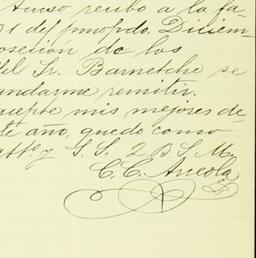 Acuso recibo a la fa-
31 del ppnopdo. Diciem-
posecion de los
del Sr. Barnetche se
andarme remitir.
acepte mis mejores de-
te año, quedo como
atto. y S. S. Q B S M.
C. C. Arreola